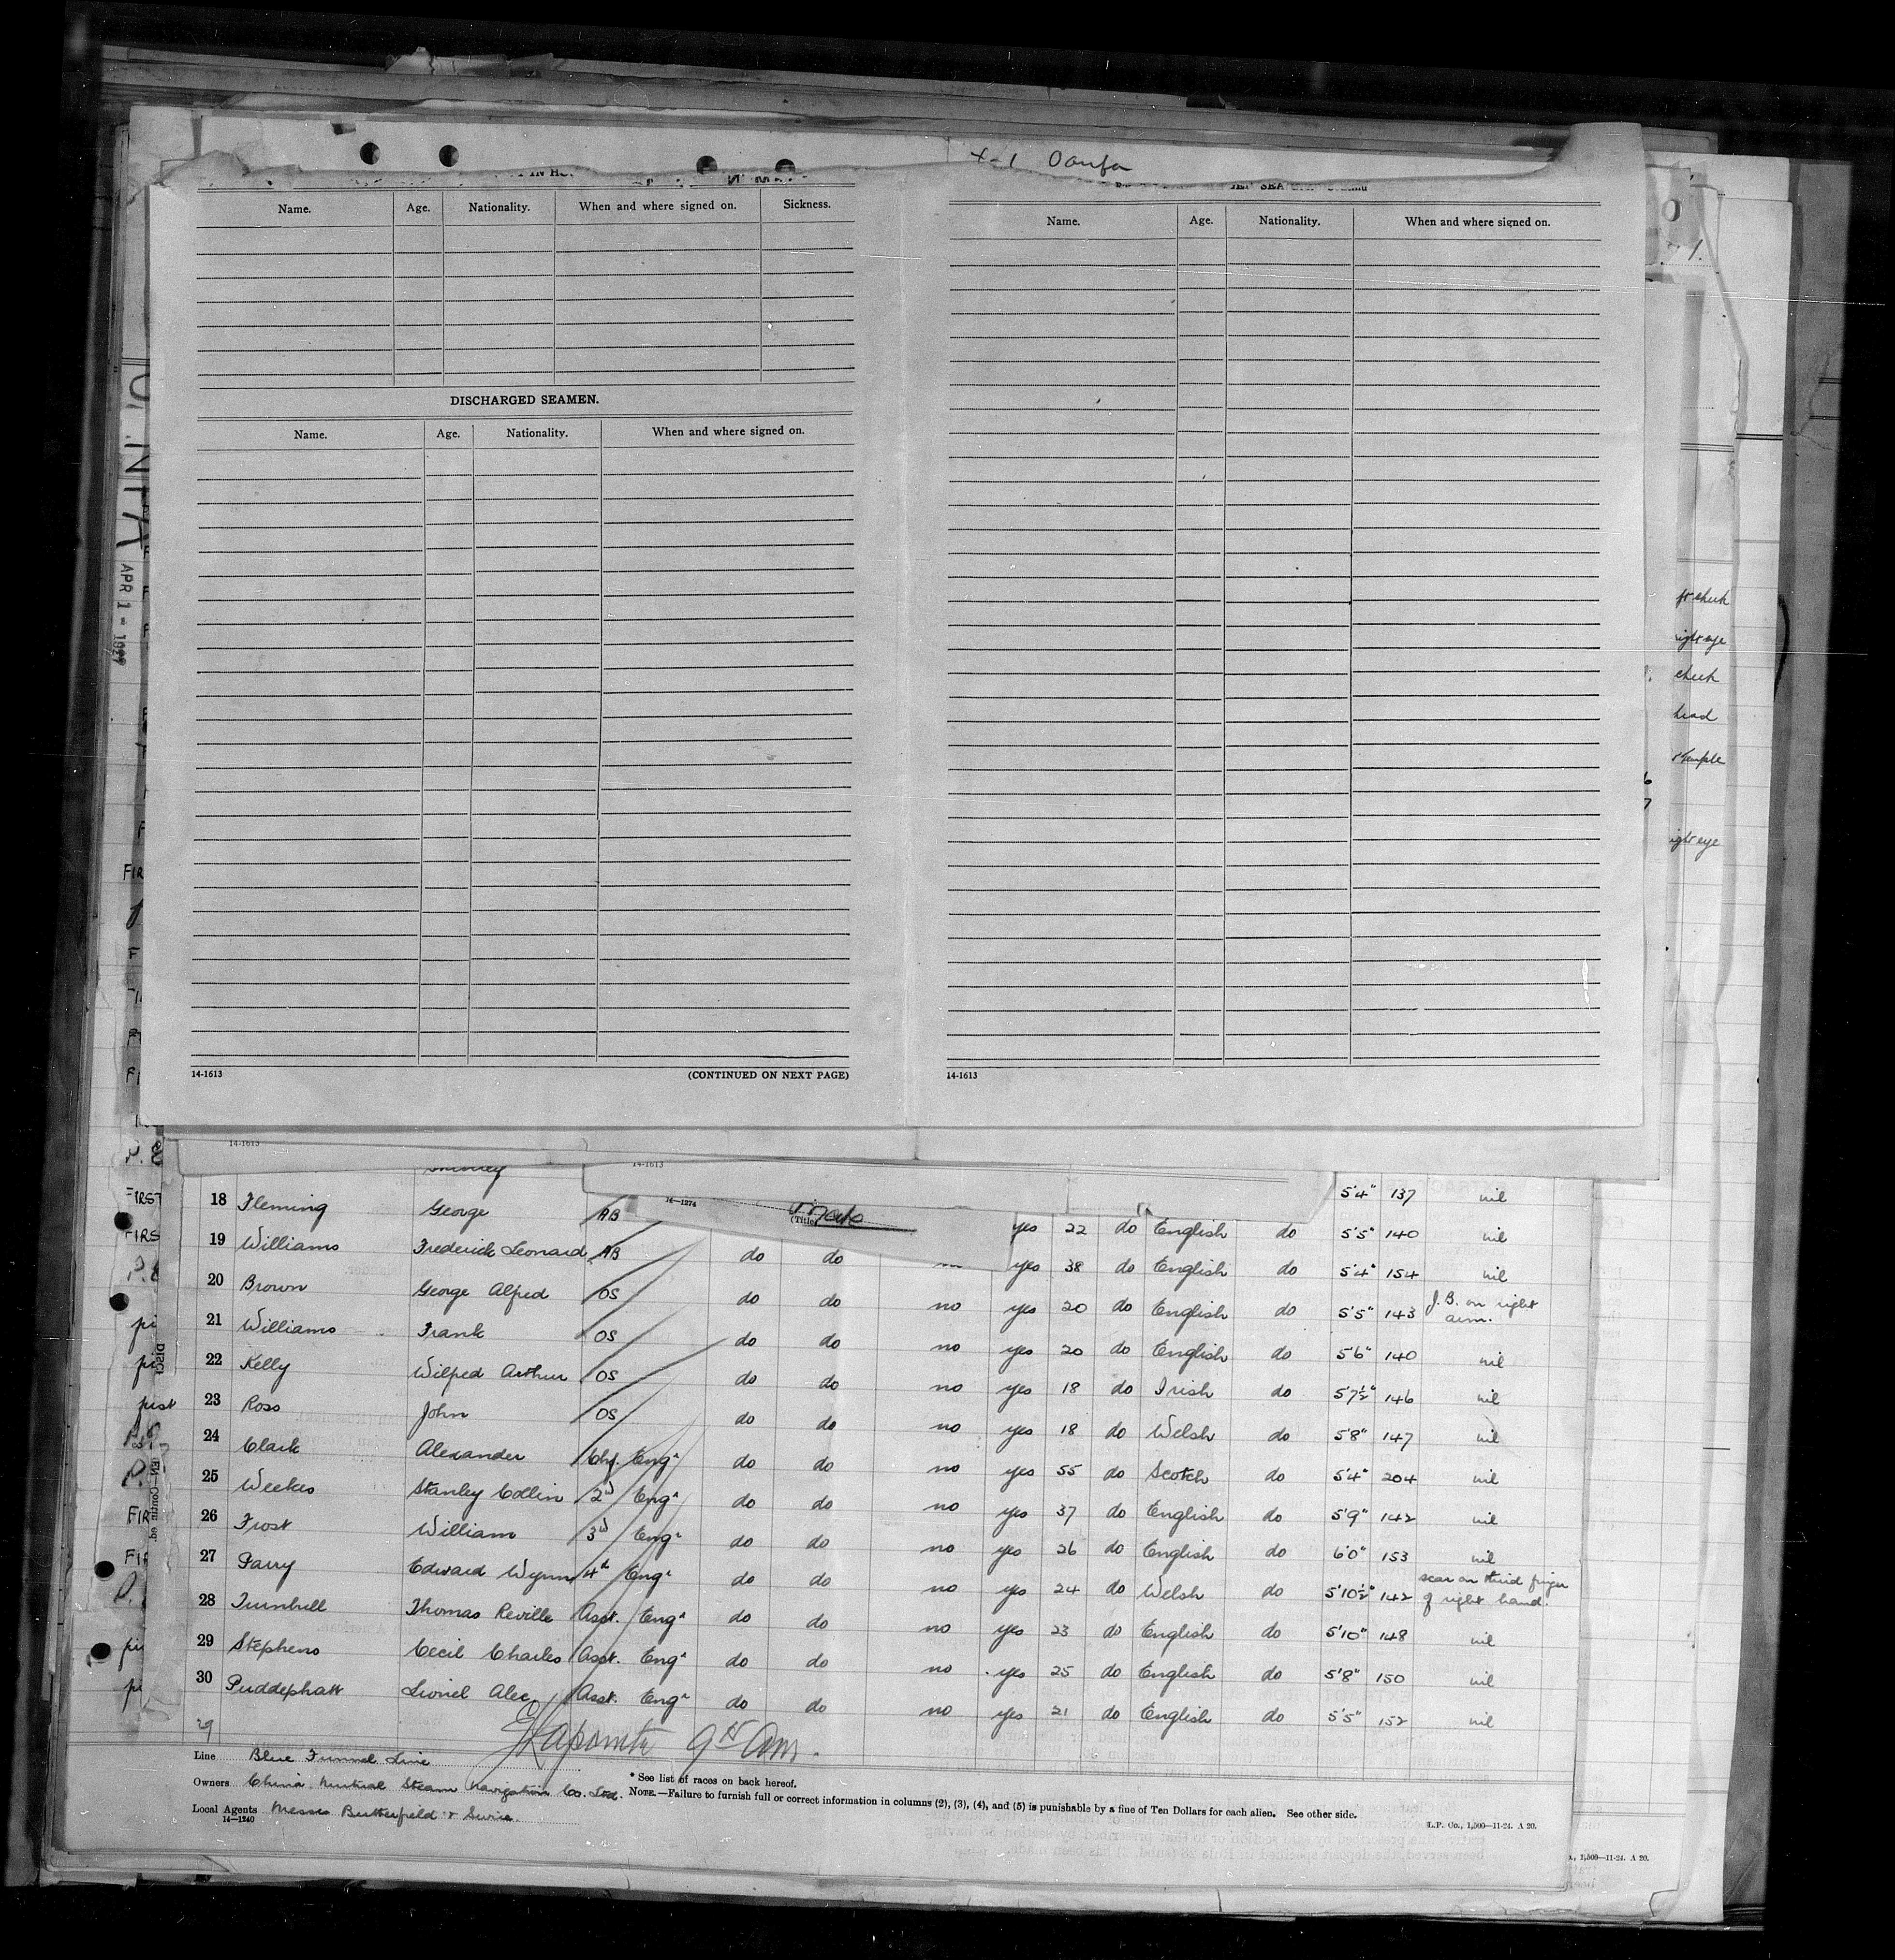 x-1 Oanfa
Name. Age. Nationality. When and where signed on. Sickness.
DISCHARGED SEAMEN.
Name. Age. Nationality. When and where signed on.
14-1613 (CONTINUED ON NEXT PAGE)
Name. Age. Nationality. When and where signed on.
14-1613
APR 1 -
ft cheek
right eye
cheek
head
temple
right eye
14-1613
14-1613
14—1274
(Title)
5'4" 137 nil
18 Fleming George AB yes 22 do English do 5'5" 140 nil
19 Williams Frederick Leonard AB do do yes 38 do English do 5'4" 154 nil
20 Brown George Alfred OS do do no yes 20 do English do 5'5" 143 J.B. on right arm.
21 Williams Frank OS do do no yes 20 do English do 5'6" 140 nil
22 Kelly Wilfred Arthur OS do do no yes 18 do Irish do 5'7½" 146 nil
23 Ross John OS do do no yes 18 do Welsh do 5'8" 147 nil
24 Clark Alexander Chf. Engr do do no yes 55 do Scotch do 5'4" 204 nil
25 Weekes Stanley Collin 2d Engr do do no yes 37 do English do 5'9" 142 nil
26 Frost William 3d Engr do do no yes 26 do English do 6'0" 153 nil
27 Parry Edward Wynn 4th Engr do do no yes 24 do Welsh do 5'10½" 142 scar on third finger of right hand.
28 Turnbull Thomas Reville Asst. Engr do do no yes 23 do English do 5'10" 148 nil
29 Stephens Cecil Charles Asst. Engr do do no yes 25 do English do 5'8" 150 nil
30 Puddephatt Lionel Alec Asst. Engr do do no yes 21 do English do 5'5" 152 nil
29
Line Blue Funnel Line
Owners China Mutual Steam Navigation Co. Ltd.
* See list of races on back hereof.
NOTE.—Failure to furnish full or correct information in columns (2), (3), (4), and (5) is punishable by a fine of Ten Dollars for each alien. See other side.
Local Agents Messrs Butterfield & Swire
14—1240
L.P. Co., 1,500—11-24. A 20.
1,500—11-24. A 20.